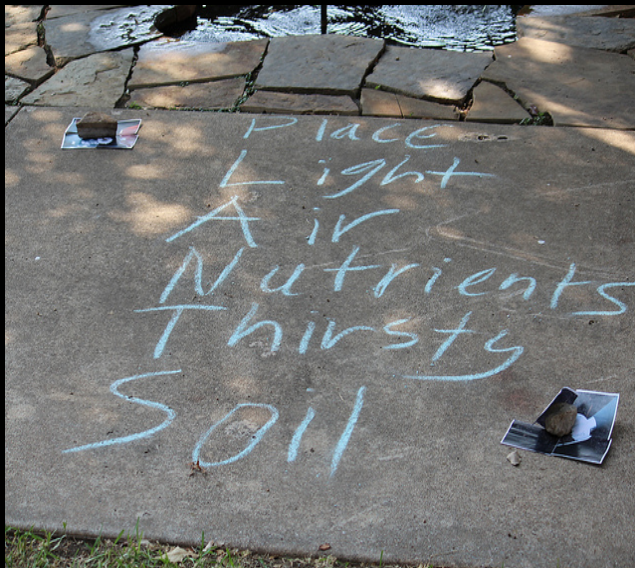 Place
Light
Air
Nutrients
Thirsty
Soil